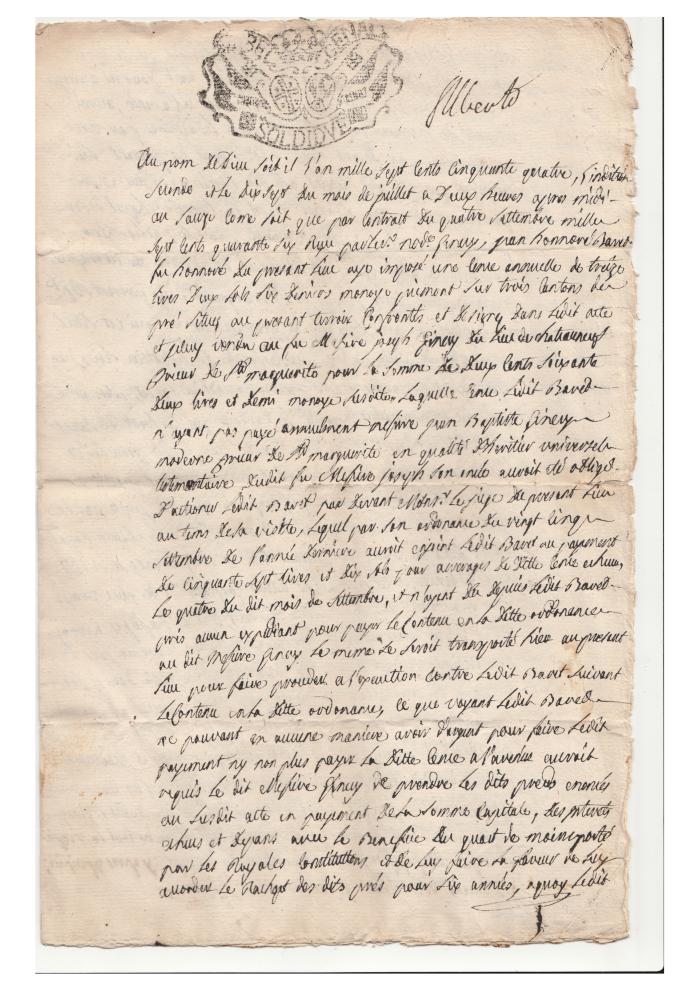 SOLDI DVE
Alberto
Au nom de Dieu soit il l'an mille sept cents cinquante quatre, l'indition
seconde et le dix sept du mois de juillet a deux heures apres midi
au Sauze come soit que par contrat du quatre settembre mille
sept cents quarante six reçu par le not.e Gineys, jean honnoré Bavet
fu honnoré du presant lieu aye imposé une cence annuelle de treize
livres deux sols six deniers monoye piemont sur trois cantons de
pré situés au presant terroir confrontés et designés dans ledit acte
et icelluy vendu au fu Messire joseph Gineys du lieu de chateauneuf
prieur de Ste marguerite pour la somme de deux cents soixante
deux livres et demi monoye susditte, laquelle cence ledit Bavet
n'ayant pas payé annuelment messire jean Baptiste Gineys
moderne prieur de Ste marguerite en qualité d'heritier universel
testementaire dudit fu Messire joseph son oncle auroit eté obligé
d'actioner ledit Bavet par devant Monsr. le juge du present lieu
au tems de sa visitte, lequel par son ordonance du vingt cinq
settembre de l'année derniere auroit enjoint ledit Bavet au payement
de cinquante sept livres et dix sols pour arrerages de ditte cence echeus
le quatre du dit mois de settembre, et n'ayent du depuis ledit Bavet
pris aucun expediant pour payer le contenu en la ditte ordonance
au dit Messire Gineys le même se seroit transporté hier au present
lieu pour faire proceder a l'execution contre ledit Bavet suivant
le contenu en la ditte ordonance, ce que voyant ledit Bavet
ne pouvant en aucune maniere avoir d'argent pour faire ledit
payement ny non plus payer la ditte cence a l'avenir auroit
requis le dit Messire Gineys de prendre les dits preds enoncés
au susdit acte en payement de la somme capitale, des interets
echeus et depans avec le benefice du quart de moins porté
par les Royales constitutions et de luy faire la faveur de luy
accorder le Rachapt des dits prés pour six années, a quoy ledit